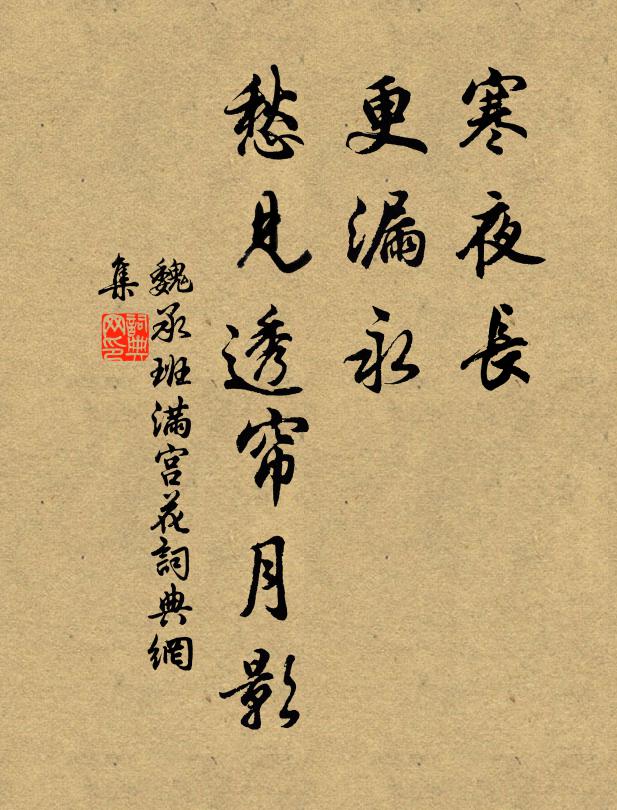 寒夜長
更漏永
愁見透帘月影
魏承班滿宮花詞典網
集
詞典
网印